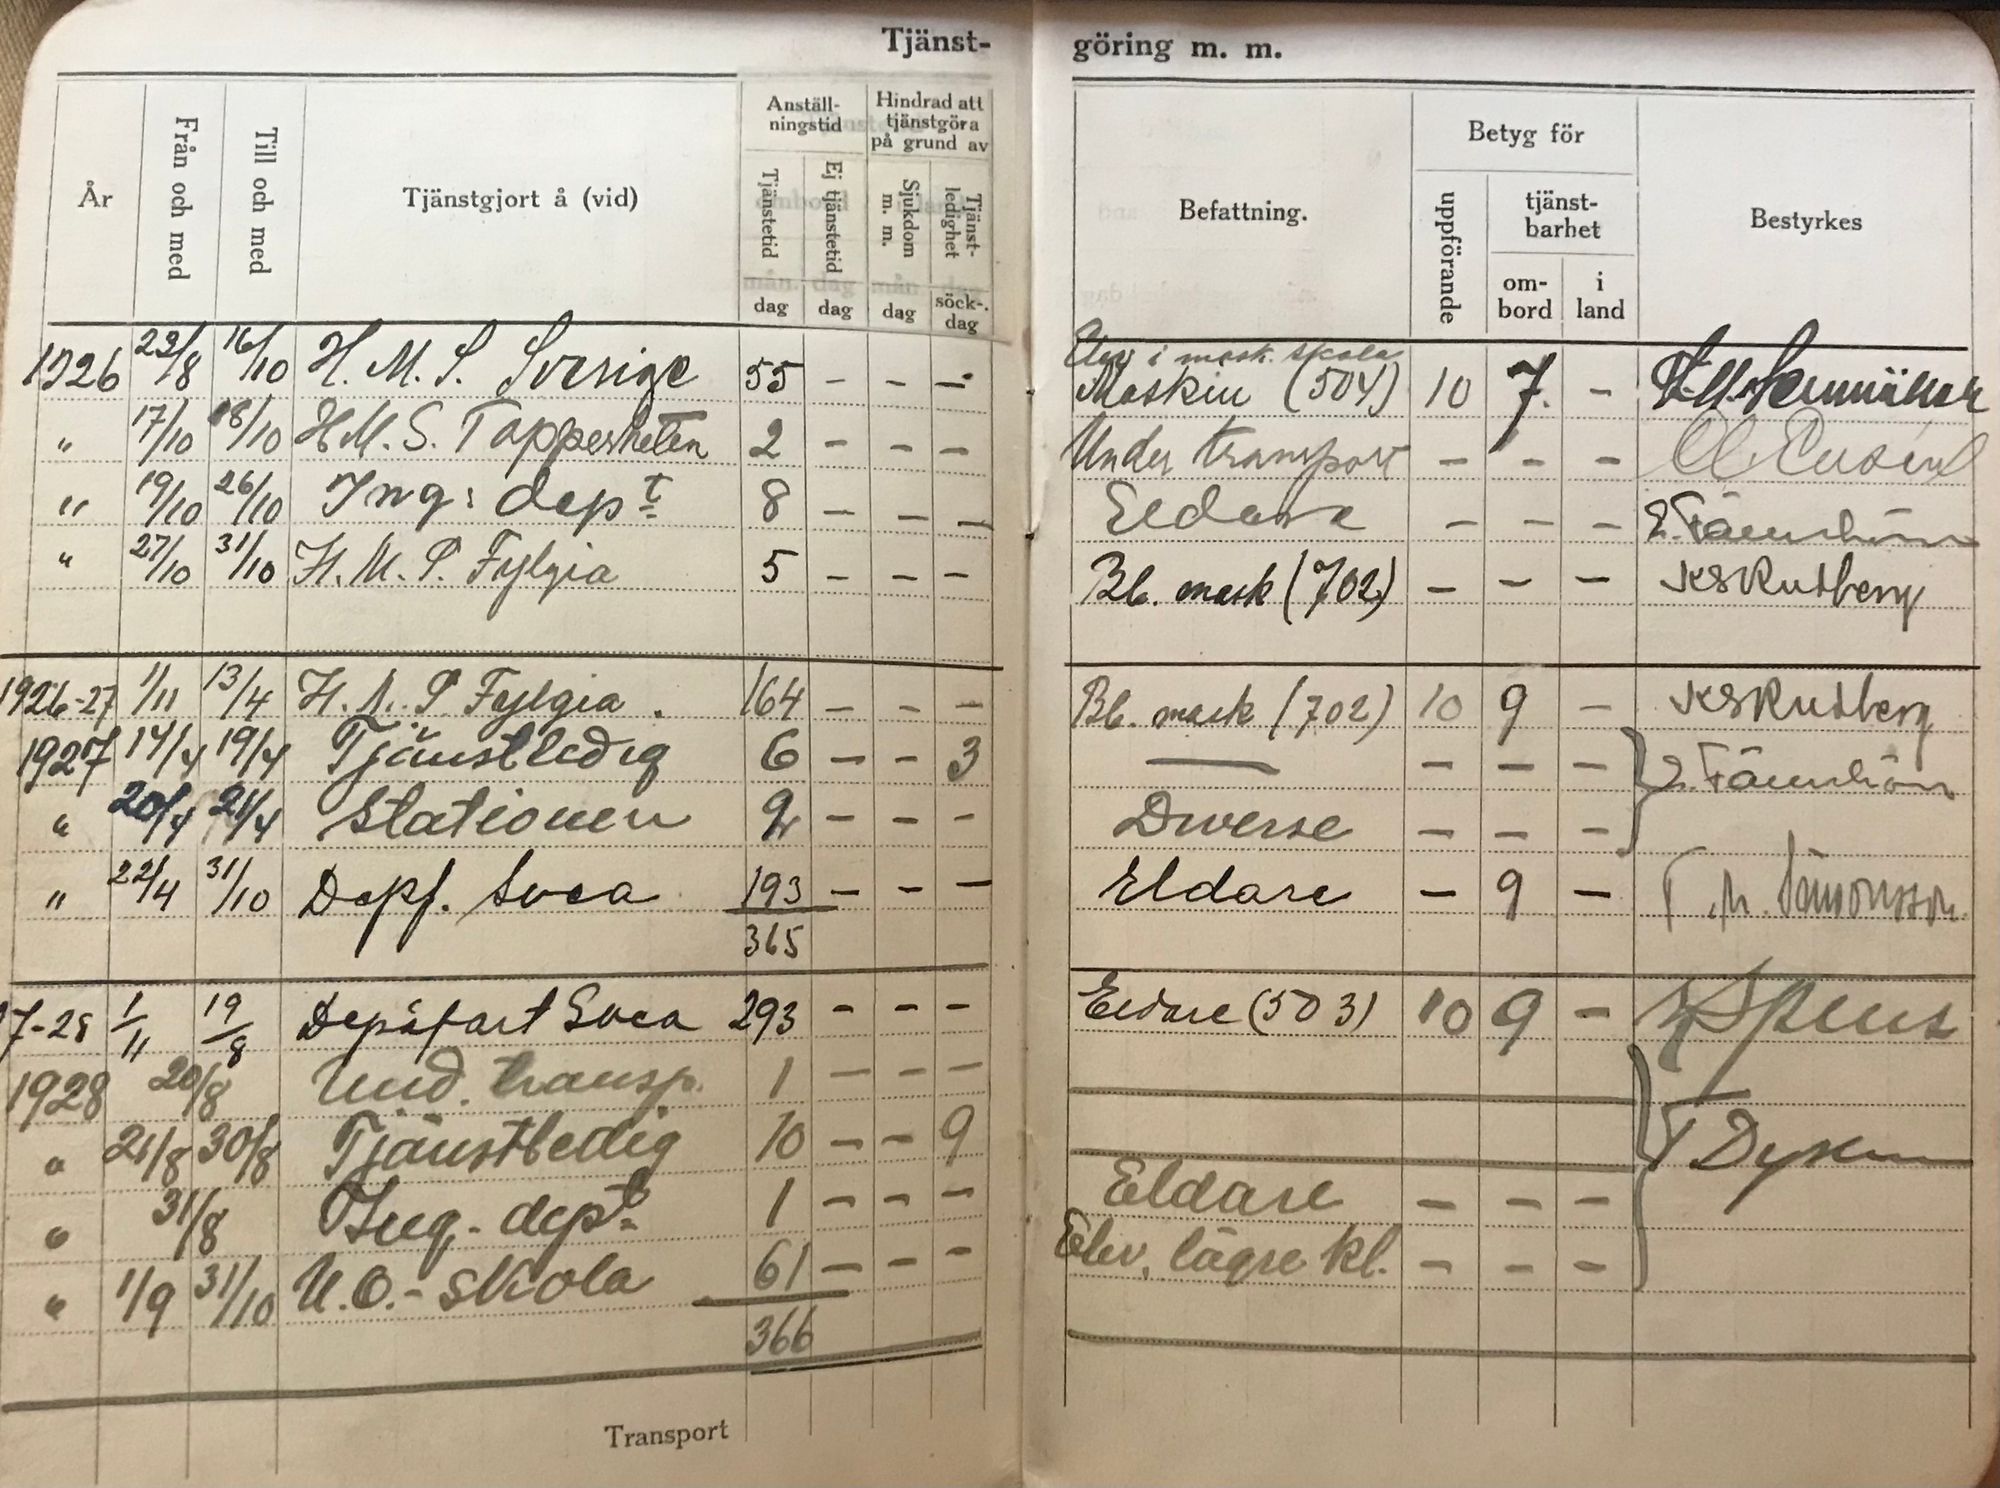 Tjänst- göring m. m.
År
Från och med
Till och med
Tjänstgjort å (vid)
Anställ-
ningstid
Tjänstetid
dag
Ej tjänstetid
dag
Hindrad att
tjänstgöra
på grund av
Sjukdom
m. m.
dag
Tjänst-
ledighet
söck-
dag
Befattning.
Betyg för
uppförande
tjänst-
barhet
om-
bord
i
land
Bestyrkes
Elev i mask. skola
1926 23/8 16/10 H. M. S. Sverige 55 – – – Maskin (504) 10 7. –
" 17/10 18/10 H.M.S. Tapperheten 2 – – – Under transport – – –
" 19/10 26/10 Ing: dept 8 – – – Eldare – – –
" 27/10 31/10 H. M. S. Fylgia 5 – – – Bb. mask (702) – – – KSRudberg
1926-27 1/11 13/4 H. M. S. Fylgia. 164 – – – Bb. mask (702) 10 9 – KSRudberg
1927 14/4 19/4 Tjänstledig 6 – – 3 — – – –
" 20/4 21/4 Stationen 2 – – – Diverse – – –
" 22/4 31/10 Depf. Svea 193 – – – Eldare – 9 –
365
7-28 1/11 19/8 Depåfart Svea 293 – – – Eldare (503) 10 9 –
1928 20/8 Und. transp. 1 – – –
" 21/8 30/8 Tjänstledig 10 – – 9
" 31/8 Ing.- dept 1 – – – Eldare – – –
" 1/9 31/10 U.O.- skola 61 – – – Elev, lägre kl. – – –
366
Transport